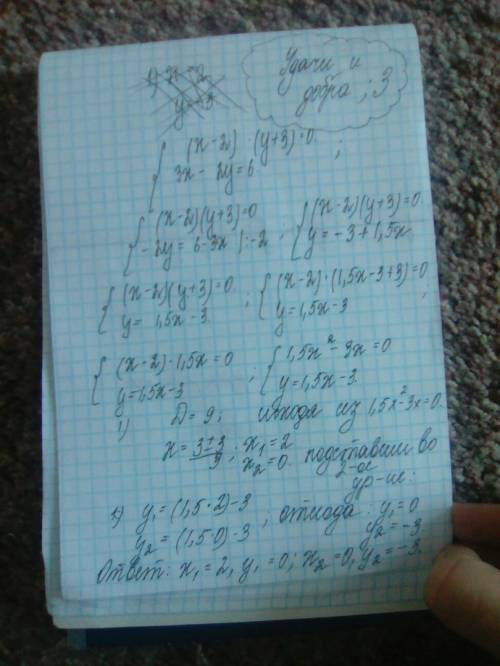 Удачи и
добра ;3
{ (x-2) (y+3)=0.
3x - 2y=6 ;
{ (x-2)(y+3)=0
-2y = 6-3x |:-2 ; { (x-2)(y+3)=0.
y = -3 + 1,5x
{ (x-2)(y+3)=0.
y = 1,5x-3. ; { (x-2)·(1,5x-3+3)=0
y=1,5x-3 ;
{ (x-2)·1,5x=0
y=1,5x-3 ; { 1,5x²-3x=0
y=1,5x-3.
1) D=9, исходя из 1,5x²-3x=0.
x = 3±3/3 ; x₁=2
x₂=0. подставим во
2-ое
ур-ие:
y₁=(1,5·2)-3
y₂=(1,5·0)-3 ; отсюда: y₁=0
y₂=-3
Ответ: x₁=2, y₁=0; x₂=0, y₂=-3.